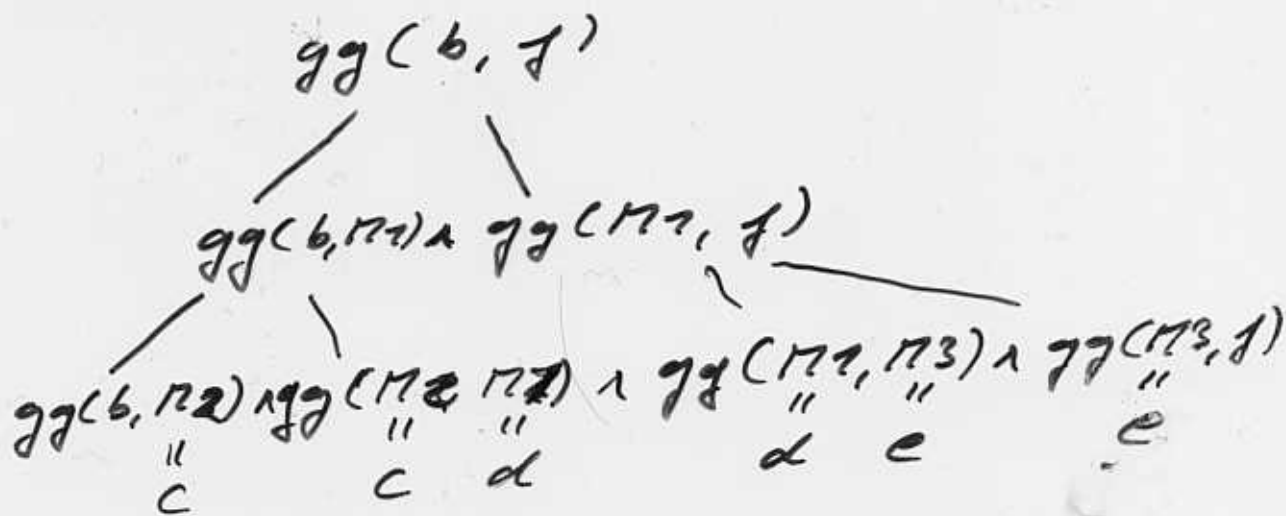 gg(b, f)
gg(b, M1) ∧ gg(M1, f)
gg(b, M2) ∧ gg(M2, M1) ∧ gg(M1, M3) ∧ gg(M3, f)
" " " " " "
c c d d e e